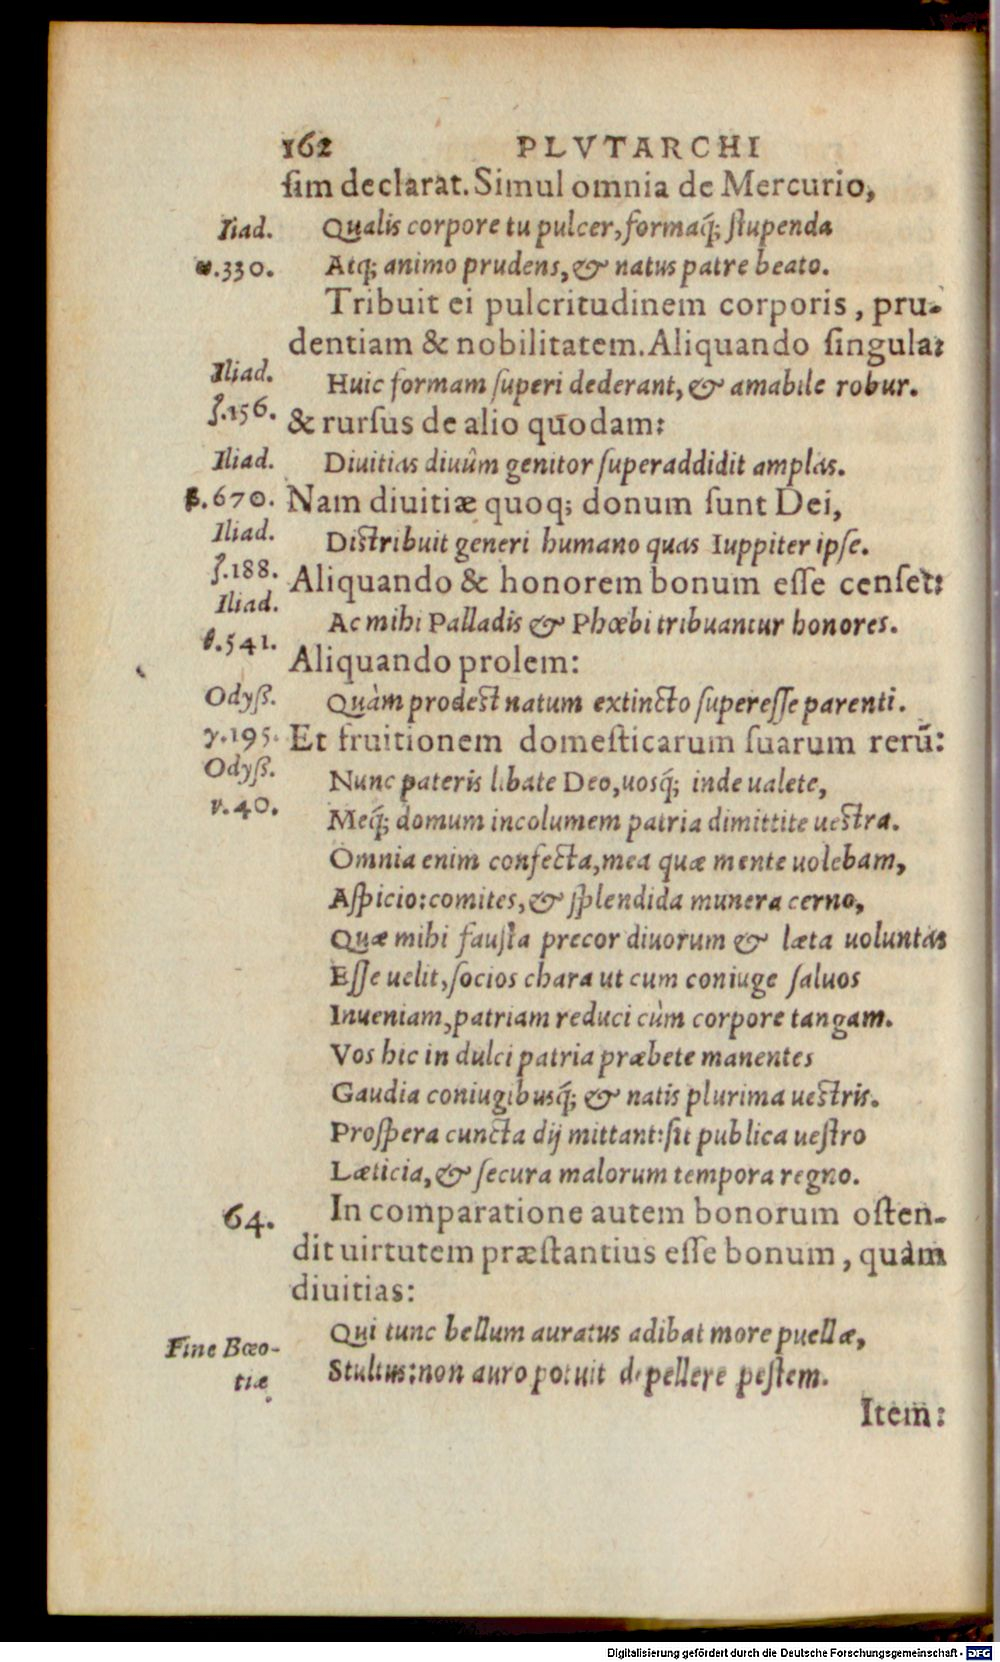 162 PLVTARCHI
sim declarat. Simul omnia de Mercurio,
Iliad. Qualis corpore tu pulcer, formaq́; stupenda
ω.330. Atq; animo prudens, & natus patre beato.
Tribuit ei pulcritudinem corporis, pru-
dentiam & nobilitatem. Aliquando singula:
Iliad. Huic formam superi dederant, & amabile robur.
ζ.156. & rursus de alio quōdam:
Iliad. Diuitias diuûm genitor superaddidit amplas.
β.670. Nam diuitiæ quoq; donum sunt Dei,
Iliad. Distribuit generi humano quas Iuppiter ipse.
ζ.188. Aliquando & honorem bonum esse censet:
Iliad. Ac mihi Palladis & Phœbi tribuantur honores.
θ.541. Aliquando prolem:
Odyß. Quàm prodest natum extincto superesse parenti.
γ.195. Et fruitionem domesticarum suarum rerū:
Odyß. Nunc pateris libate Deo, uosq́; inde ualete,
ν.40. Meq́; domum incolumem patria dimittite uestra.
Omnia enim confecta, mea quæ mente uolebam,
Aspicio: comites, & splendida munera cerno,
Quæ mihi fausta precor diuorum & læta uoluntas
Esse uelit, socios chara ut cum coniuge saluos
Inueniam, patriam reduci cùm corpore tangam.
Vos hic in dulci patria præbete manentes
Gaudia coniugibusq́; & natis plurima uestris.
Prospera cuncta dij mittant: sit publica uestro
Læticia, & secura malorum tempora regno.
64. In comparatione autem bonorum osten-
dit uirtutem præstantius esse bonum, quàm
diuitias:
Fine Bœo- Qui tunc bellum auratus adibat more puellæ,
tiæ. Stultus: non auro potuit depellere pestem.
Item:
Digitalisierung gefördert durch die Deutsche Forschungsgemeinschaft - DFG